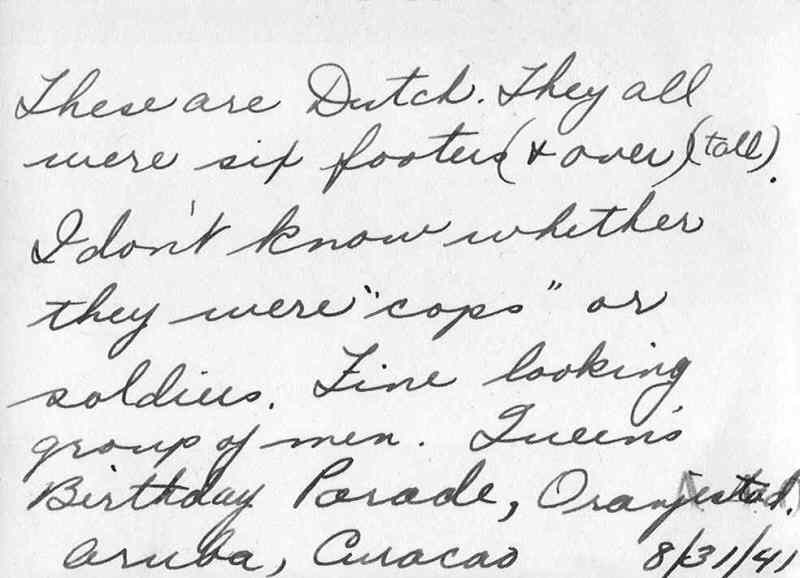 These are Dutch. They all
were six footers (& over) (tall).
I don't know whether
they were "cops" or
soldiers. Fine looking
group of men. Queen's
Birthday Parade, Oranjestad.
Aruba, Curacao 8/31/41